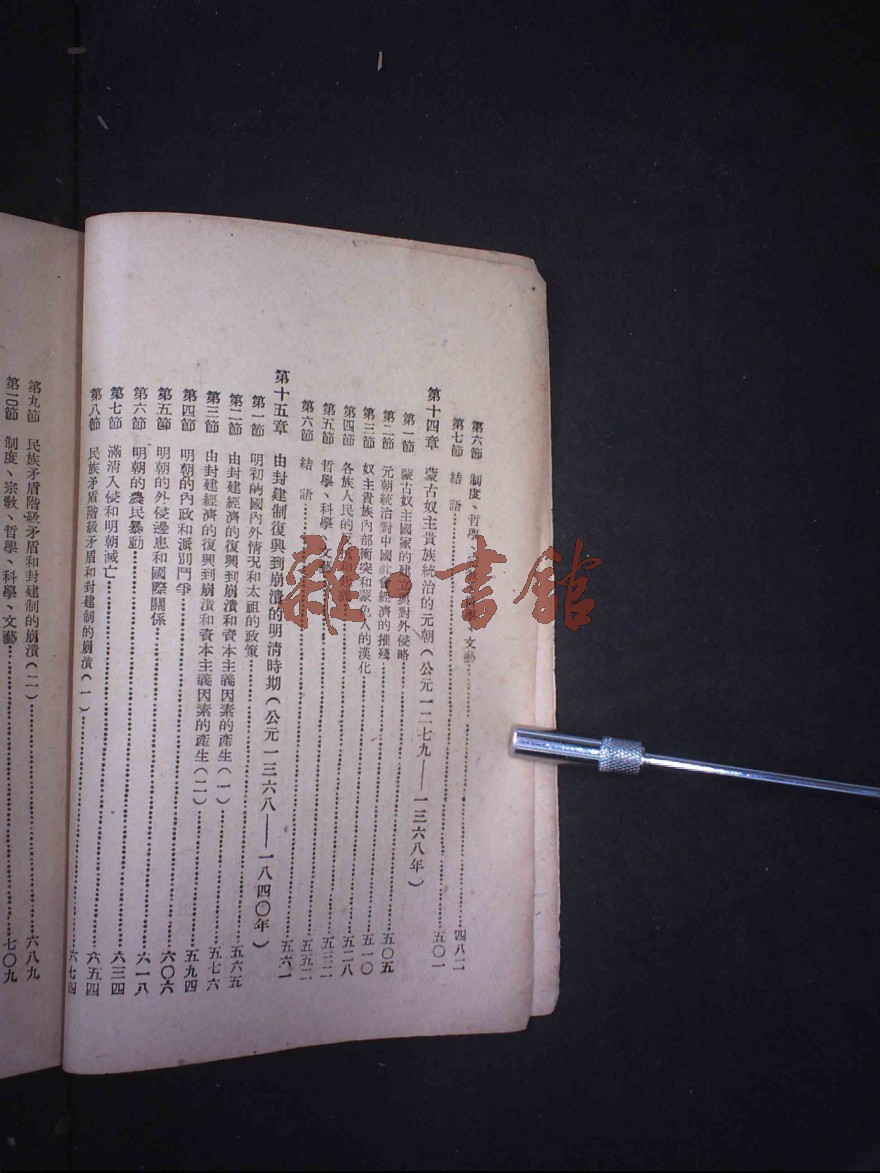 第六節 制度、哲學、科學、文藝……四八二
第七節 結語……五〇一
第十四章 蒙古奴主貴族統治的元朝(公元一二七九——一三六八年)
第一節 蒙古奴主國家的建立與對外侵略……五〇五
第二節 元朝統治對中國社會經濟的摧殘……五一〇
第三節 奴主貴族內部衝突和蒙色人的漢化……五二八
第四節 各族人民的……五三二
第五節 哲學、科學、文藝……五五二
第六節 結語……五六一
第十五章 由封建制復興到崩潰的明清時期(公元一三六八——一八四〇年)
第一節 明初的國內外情況和太祖的政策……五六五
第二節 由封建經濟的復興到崩潰和資本主義因素的產生(一)……五七六
第三節 由封建經濟的復興到崩潰和資本主義因素的產生(二)……五九四
第四節 明朝的內政和派別鬥爭……六〇六
第五節 明朝的外侵邊患和國際關係……六一八
第六節 明朝的農民暴動……六三四
第七節 滿清入侵和明朝滅亡……六五四
第八節 民族矛盾階級矛盾和封建制的崩潰(一)……六七四
第九節 民族矛盾階級矛盾和封建制的崩潰(二)……六八九
第一〇節 制度、宗教、哲學、科學、文藝……七〇九
雜·書館